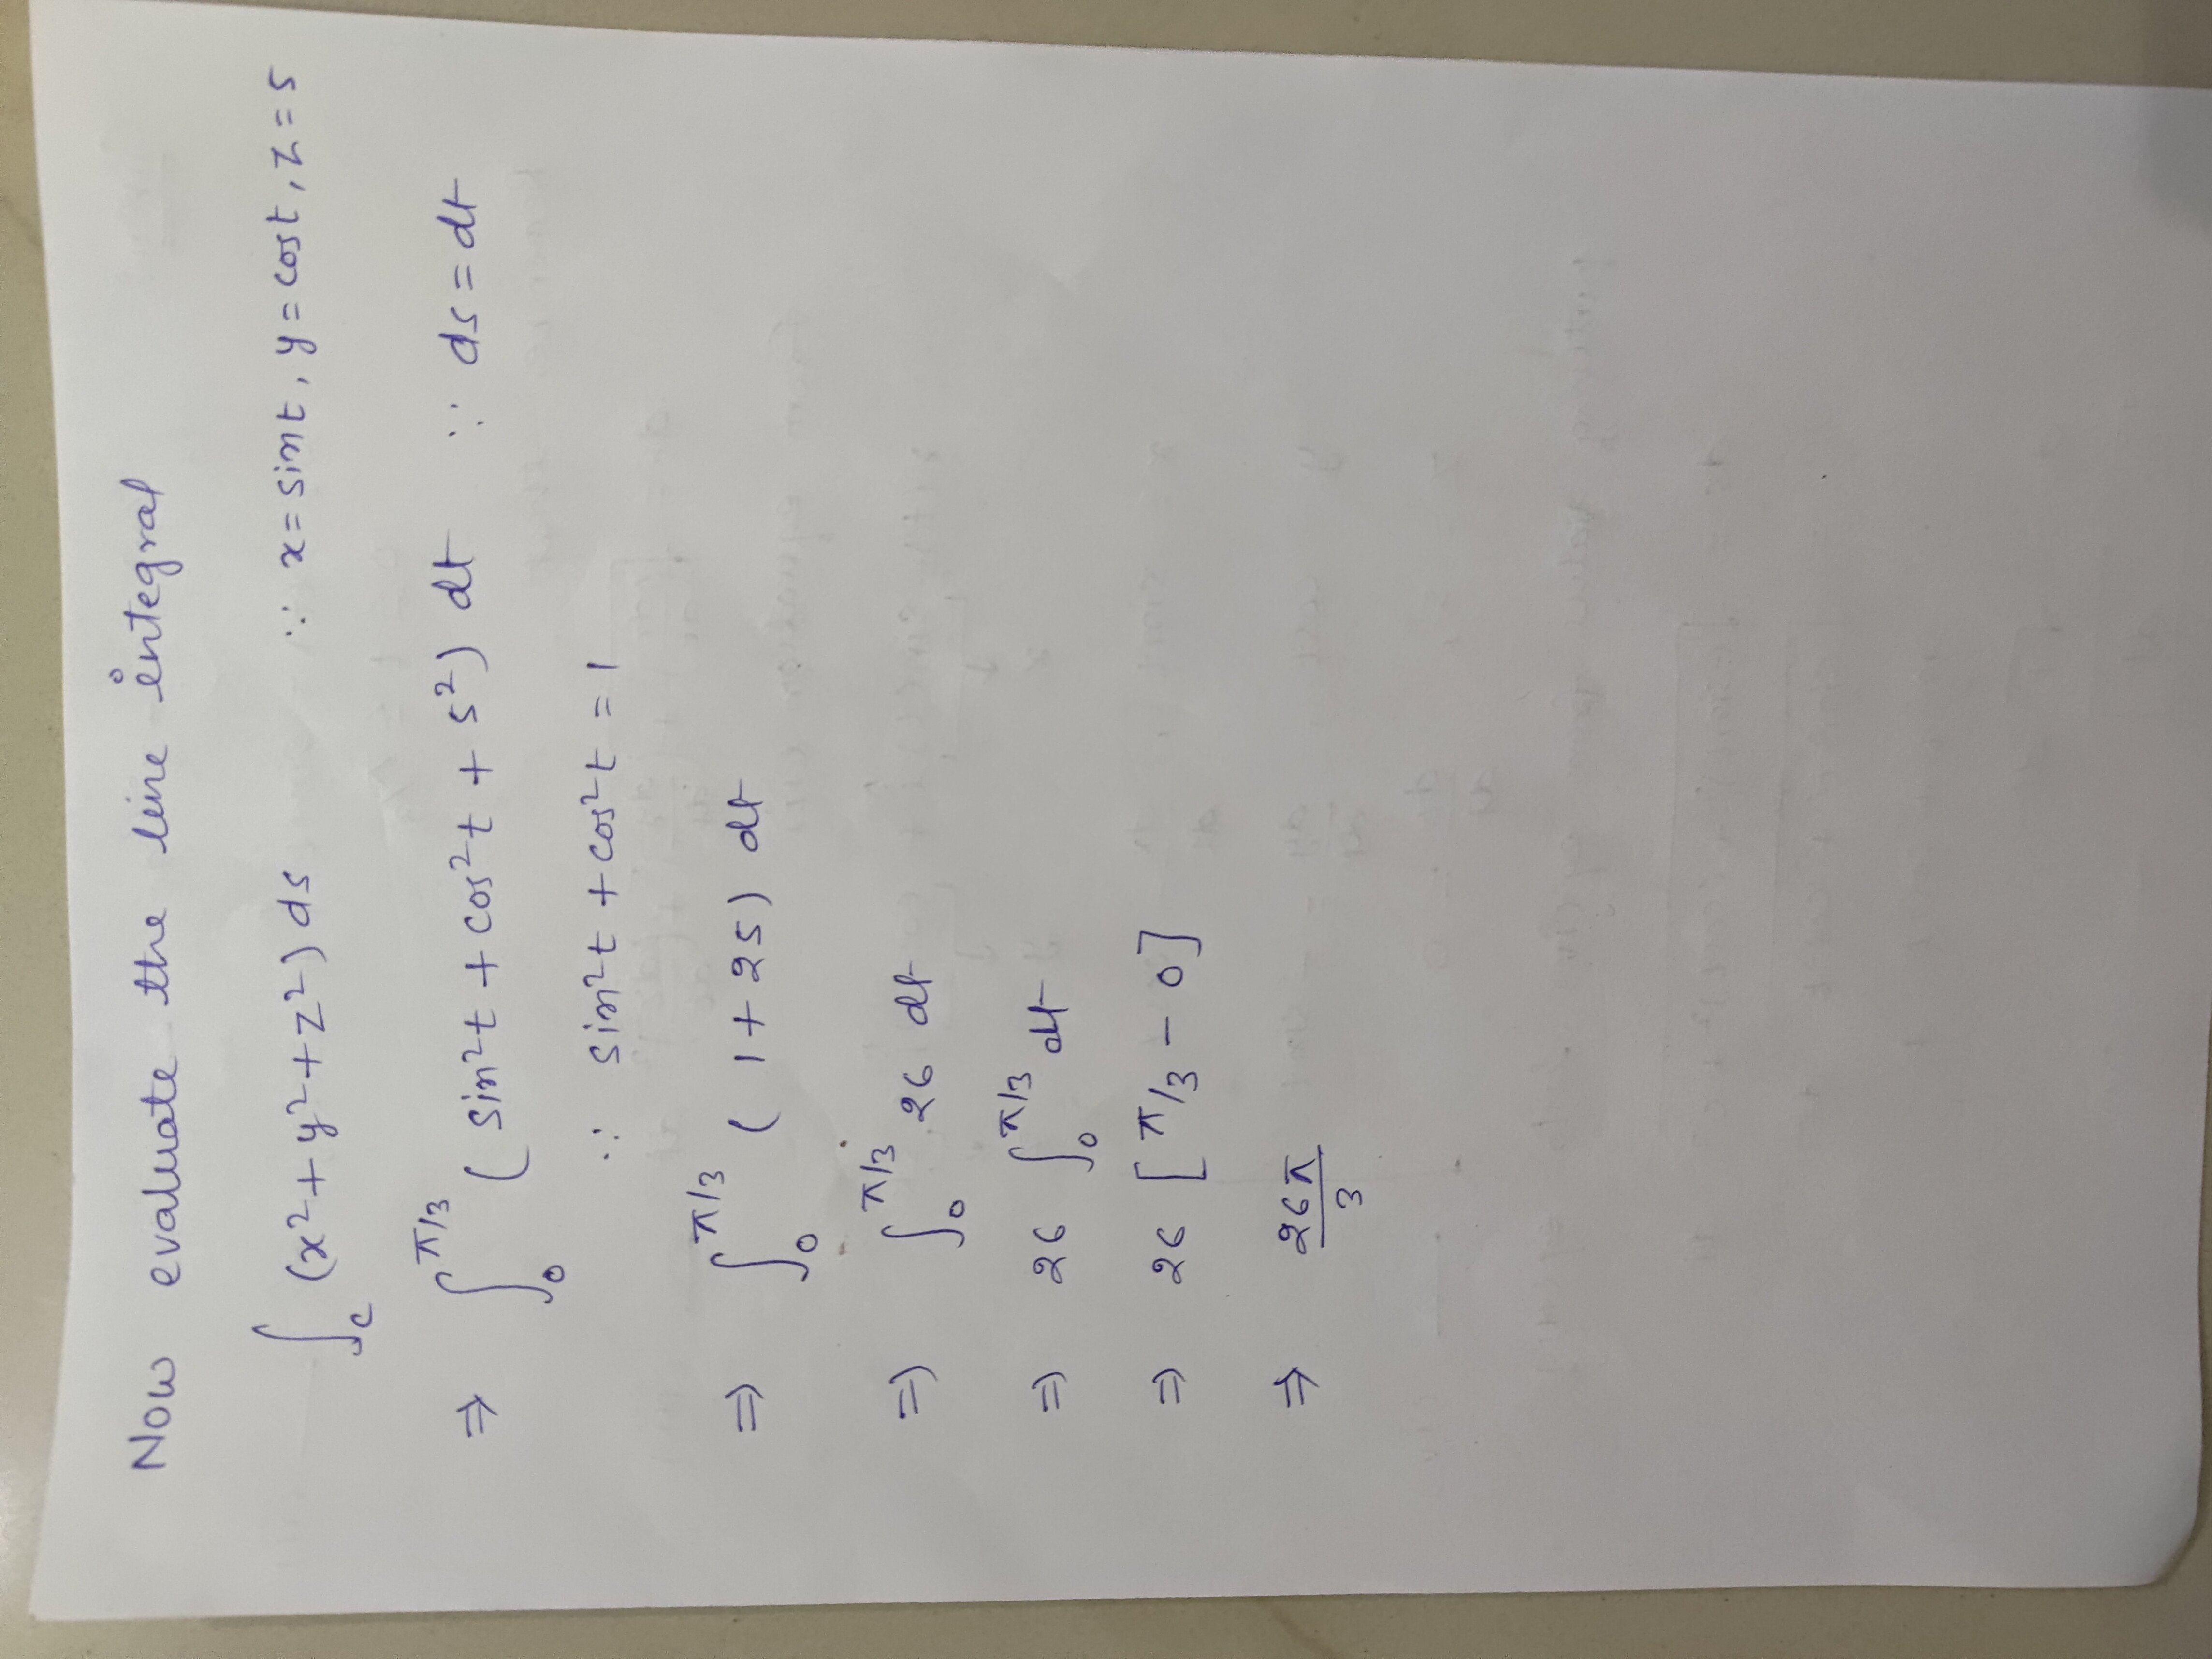 Now evaluate the line integral
∫_C (x²+y²+z²) ds ∵ x = sin t, y = cos t, z = 5
⇒ ∫₀^{π/3} (sin²t + cos²t + 5²) dt ∵ ds = dt
∴ sin²t + cos²t = 1
⇒ ∫₀^{π/3} (1 + 25) dt
⇒ ∫₀^{π/3} 26 dt
⇒ 26 ∫₀^{π/3} dt
⇒ 26 [π/3 − 0]
⇒ 26π/3